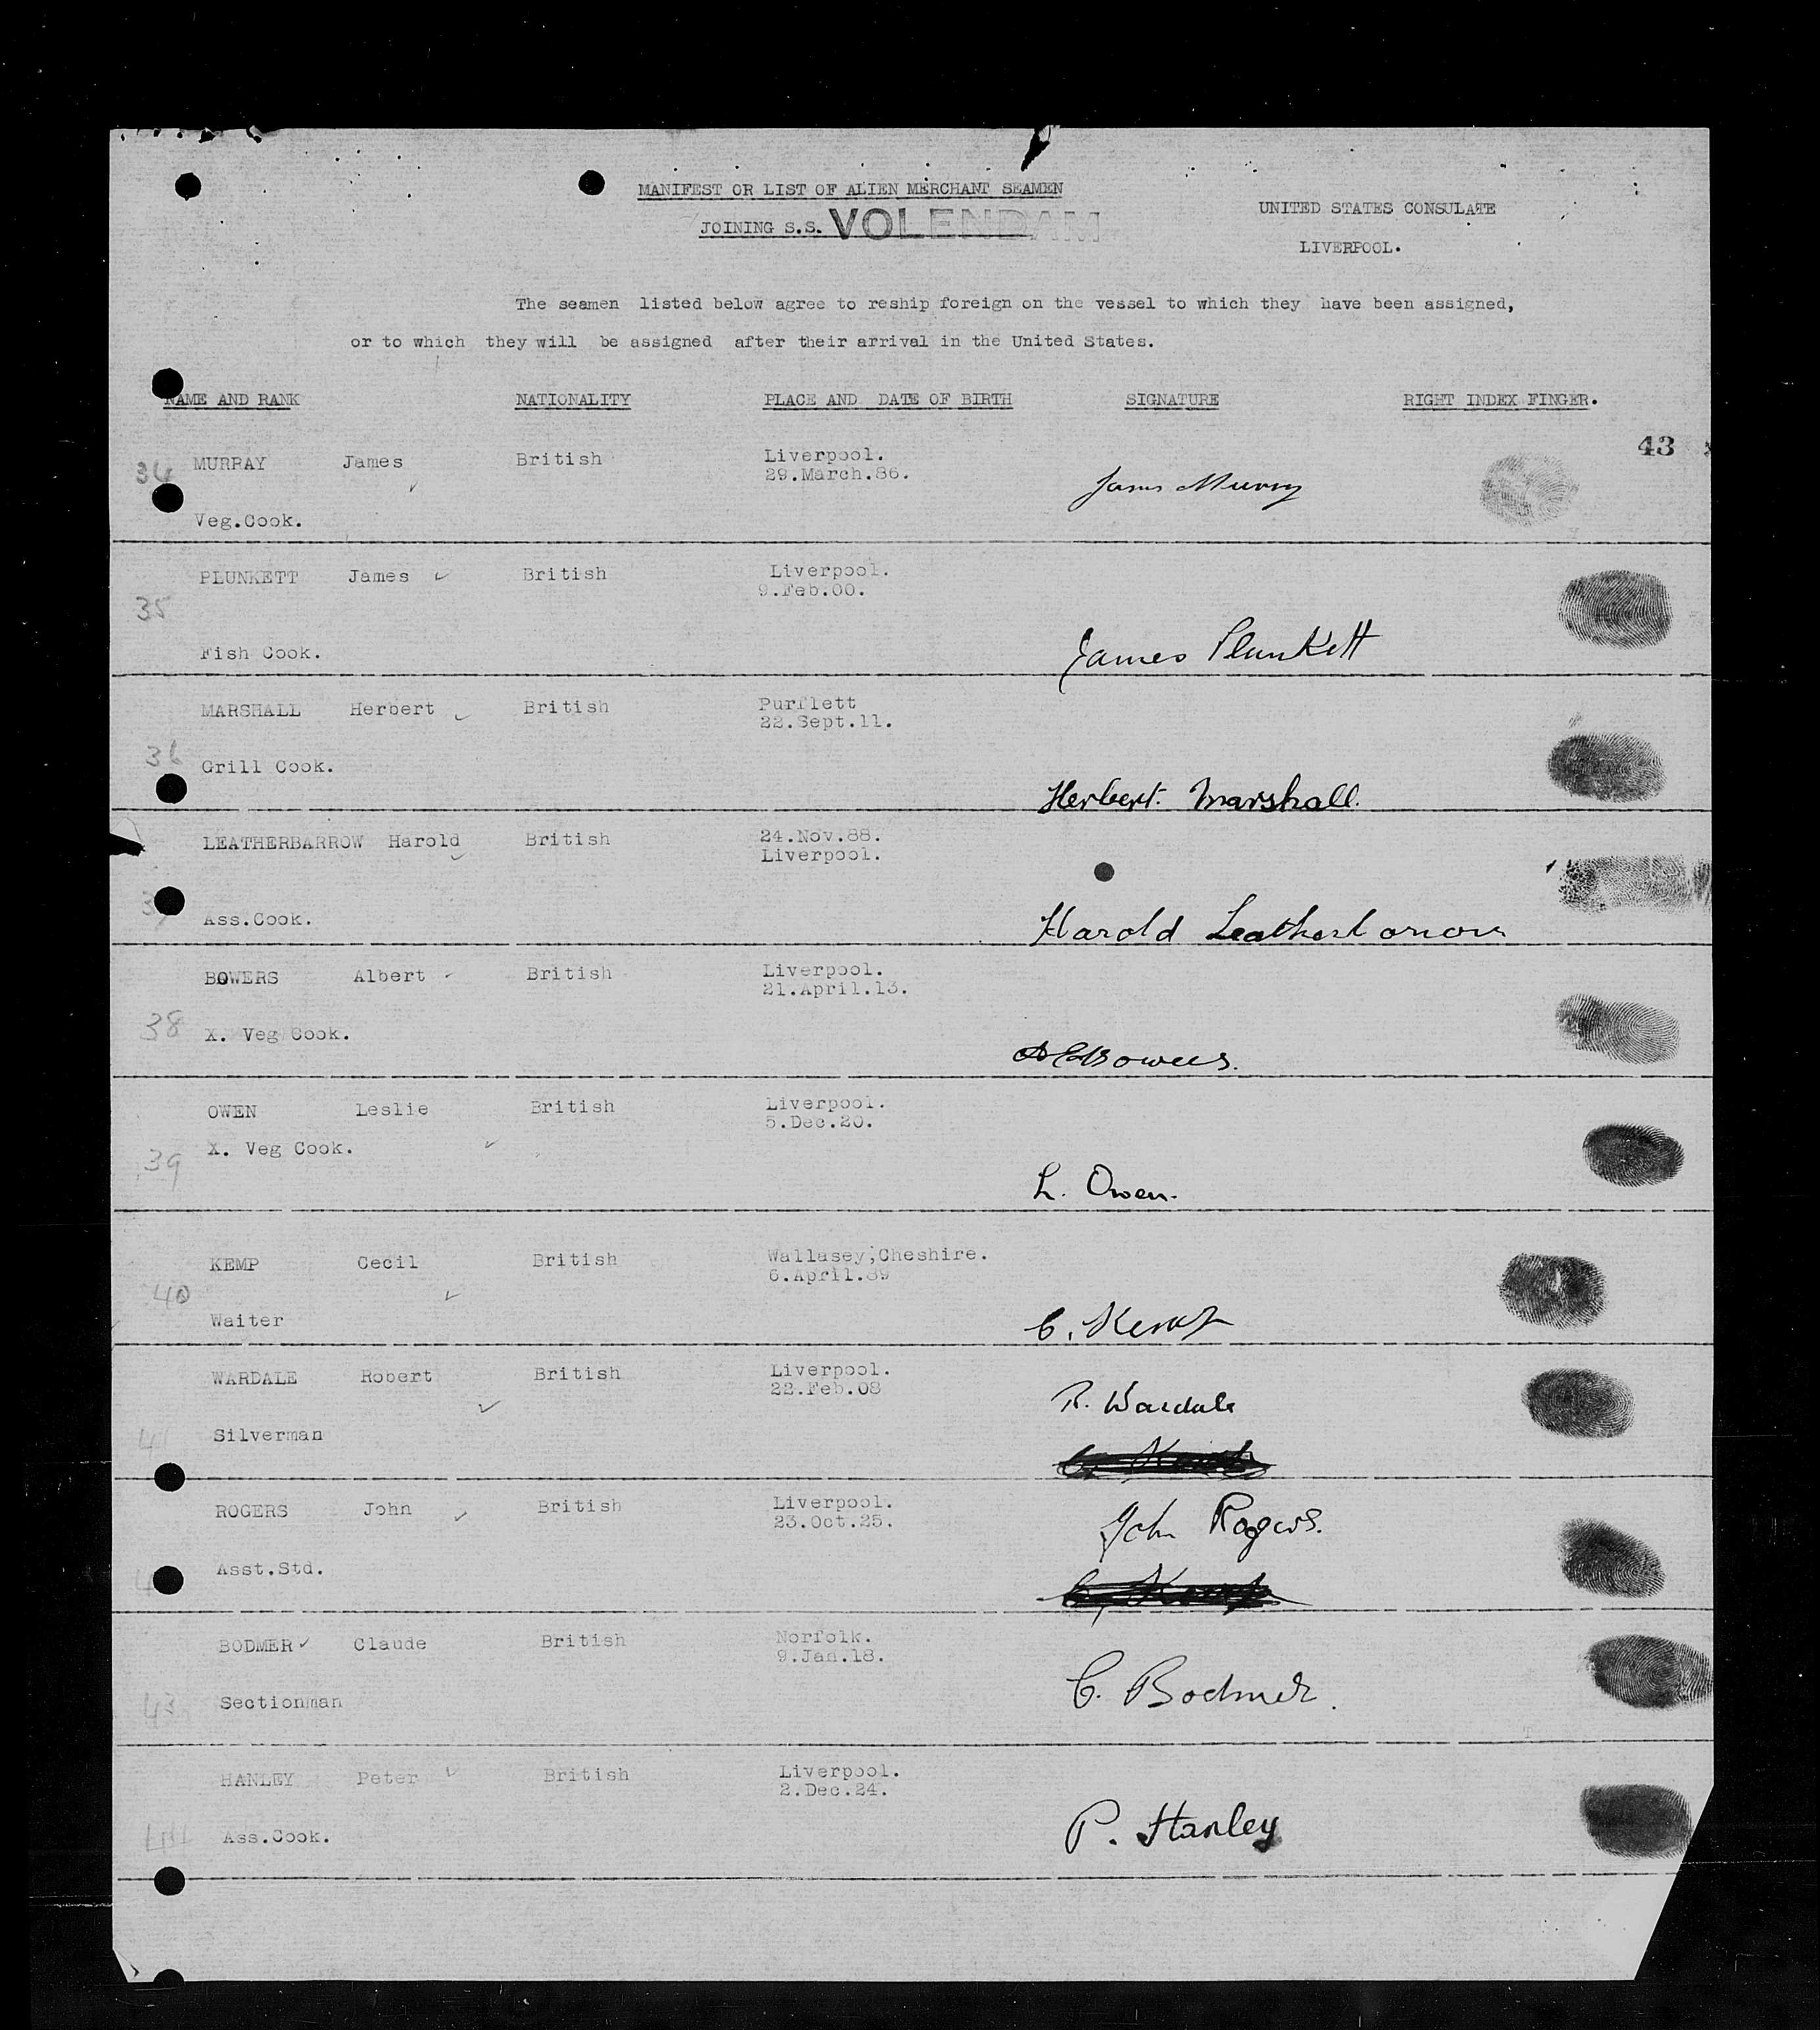 MANIFEST OR LIST OF ALIEN MERCHANT SEAMEN
JOINING S.S. VOLENDAM
UNITED STATES CONSULATE
LIVERPOOL.
The seamen listed below agree to reship foreign on the vessel to which they have been assigned,
or to which they will be assigned after their arrival in the United States.
NAME AND RANK NATIONALITY PLACE AND DATE OF BIRTH SIGNATURE RIGHT INDEX FINGER.
43
34 MURRAY James British Liverpool.
29.March.86.
James Murray
Veg.Cook.
PLUNKETT James British Liverpool.
9.Feb.00.
35
Fish Cook. James Plunkett
MARSHALL Herbert British Purflett
22.Sept.11.
36
Grill Cook.
Herbert. Marshall.
LEATHERBARROW Harold British 24.Nov.88.
Liverpool.
37
Ass.Cook. Harold Leatherbarrow
BOWERS Albert British Liverpool.
21.April.13.
38 X. Veg Cook.
A E Bowers.
OWEN Leslie British Liverpool.
5.Dec.20.
X. Veg Cook.
39
L. Owen.
KEMP Cecil British Wallasey,Cheshire.
6.April.89
40
Waiter C. Kemp
WARDALE Robert British Liverpool.
22.Feb.08
R. Wardale
41 Silverman
C. Kemp
ROGERS John British Liverpool.
23.Oct.25.
John Rogers.
Asst.Std.
C. Kemp
BODMER Claude British Norfolk.
9.Jan.18.
43 Sectionman C. Bodmer.
HANLEY Peter British Liverpool.
2.Dec.24.
44 Ass.Cook. P. Hanley